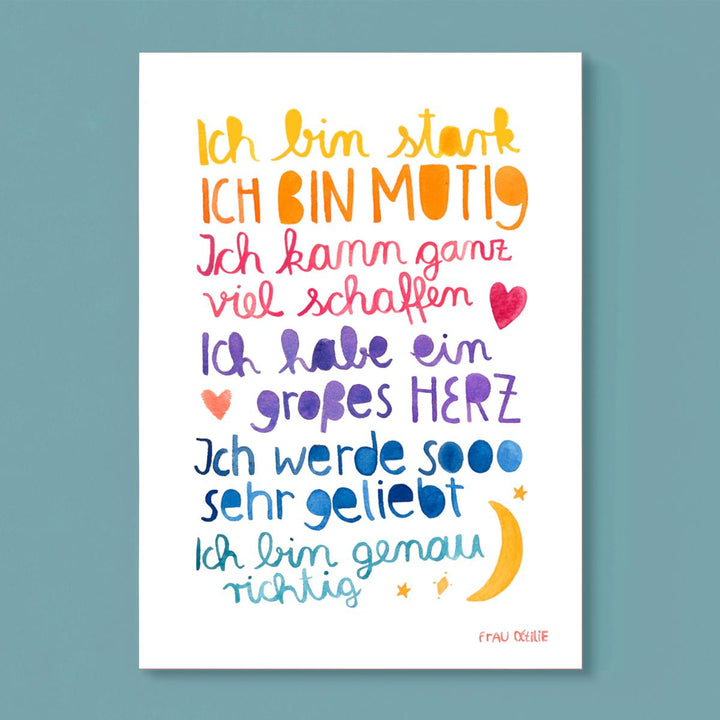 Ich bin stark
ICH BIN MUTIG
Ich kann ganz
viel schaffen
Ich habe ein
großes HERZ
Ich werde sooo
sehr geliebt
Ich bin genau
richtig
FRAU OTTILIE